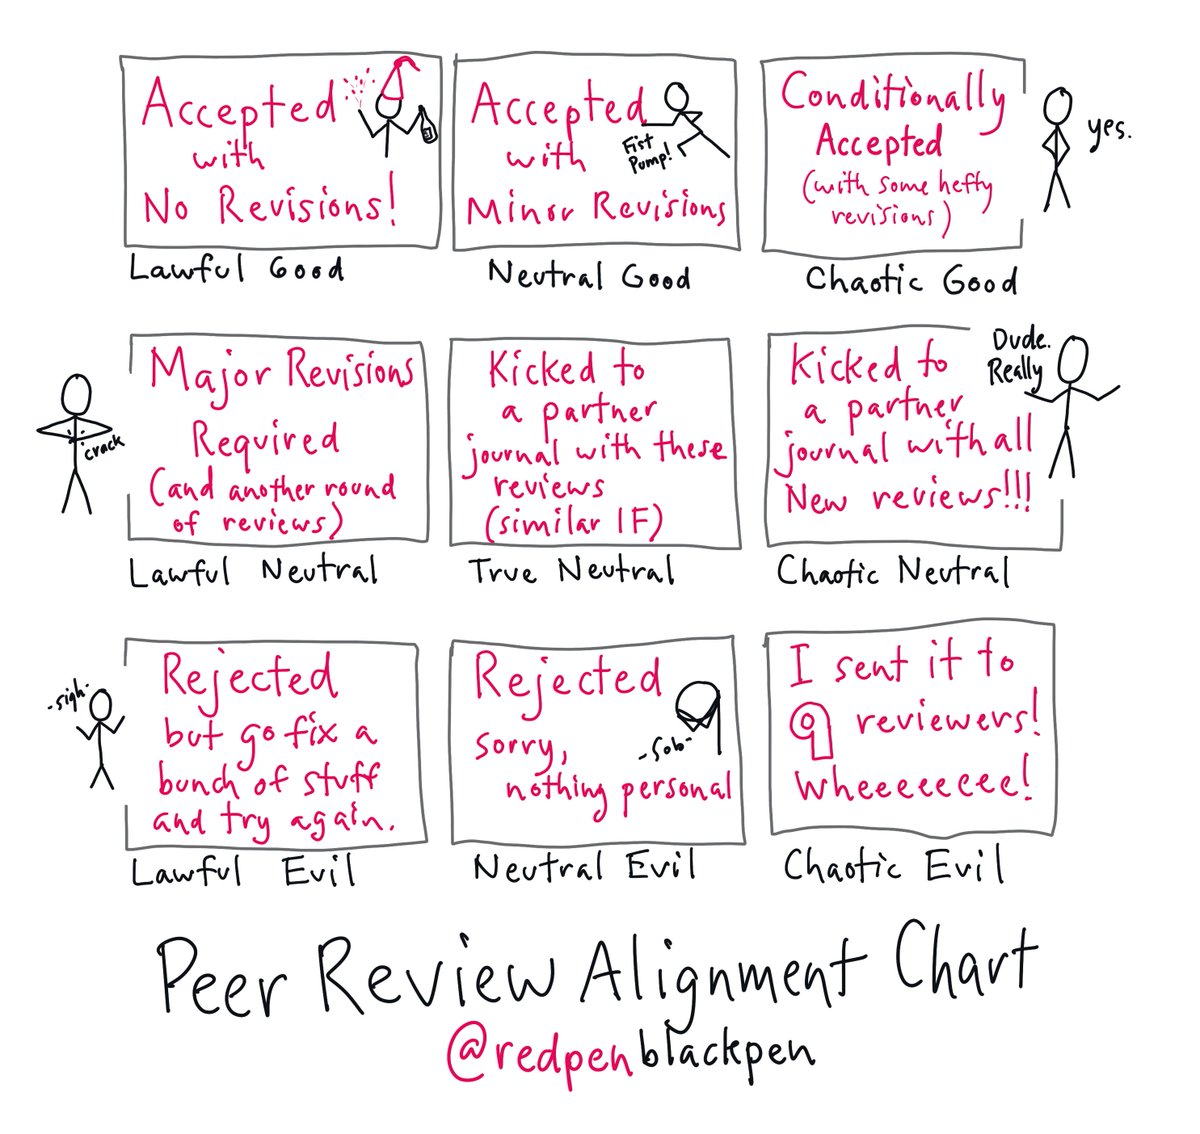 Accepted
with
No Revisions!
Lawful Good
Accepted
with
Minor Revisions
Fist
Pump!
Neutral Good
Conditionally
Accepted
(with some hefty
revisions)
yes.
Chaotic Good
Major Revisions
Required
(and another round
of reviews)
crack
Lawful Neutral
Kicked to
a partner
journal with these
reviews
(similar IF)
True Neutral
Kicked to
a partner
journal with all
New reviews!!!
Dude.
Really
Chaotic Neutral
-sigh-
Rejected
but go fix a
bunch of stuff
and try again.
Lawful Evil
Rejected
sorry,
nothing personal
-sob-
Neutral Evil
I sent it to
9 reviewers!
Wheeeeeeee!
Chaotic Evil
Peer Review Alignment Chart
@redpenblackpen